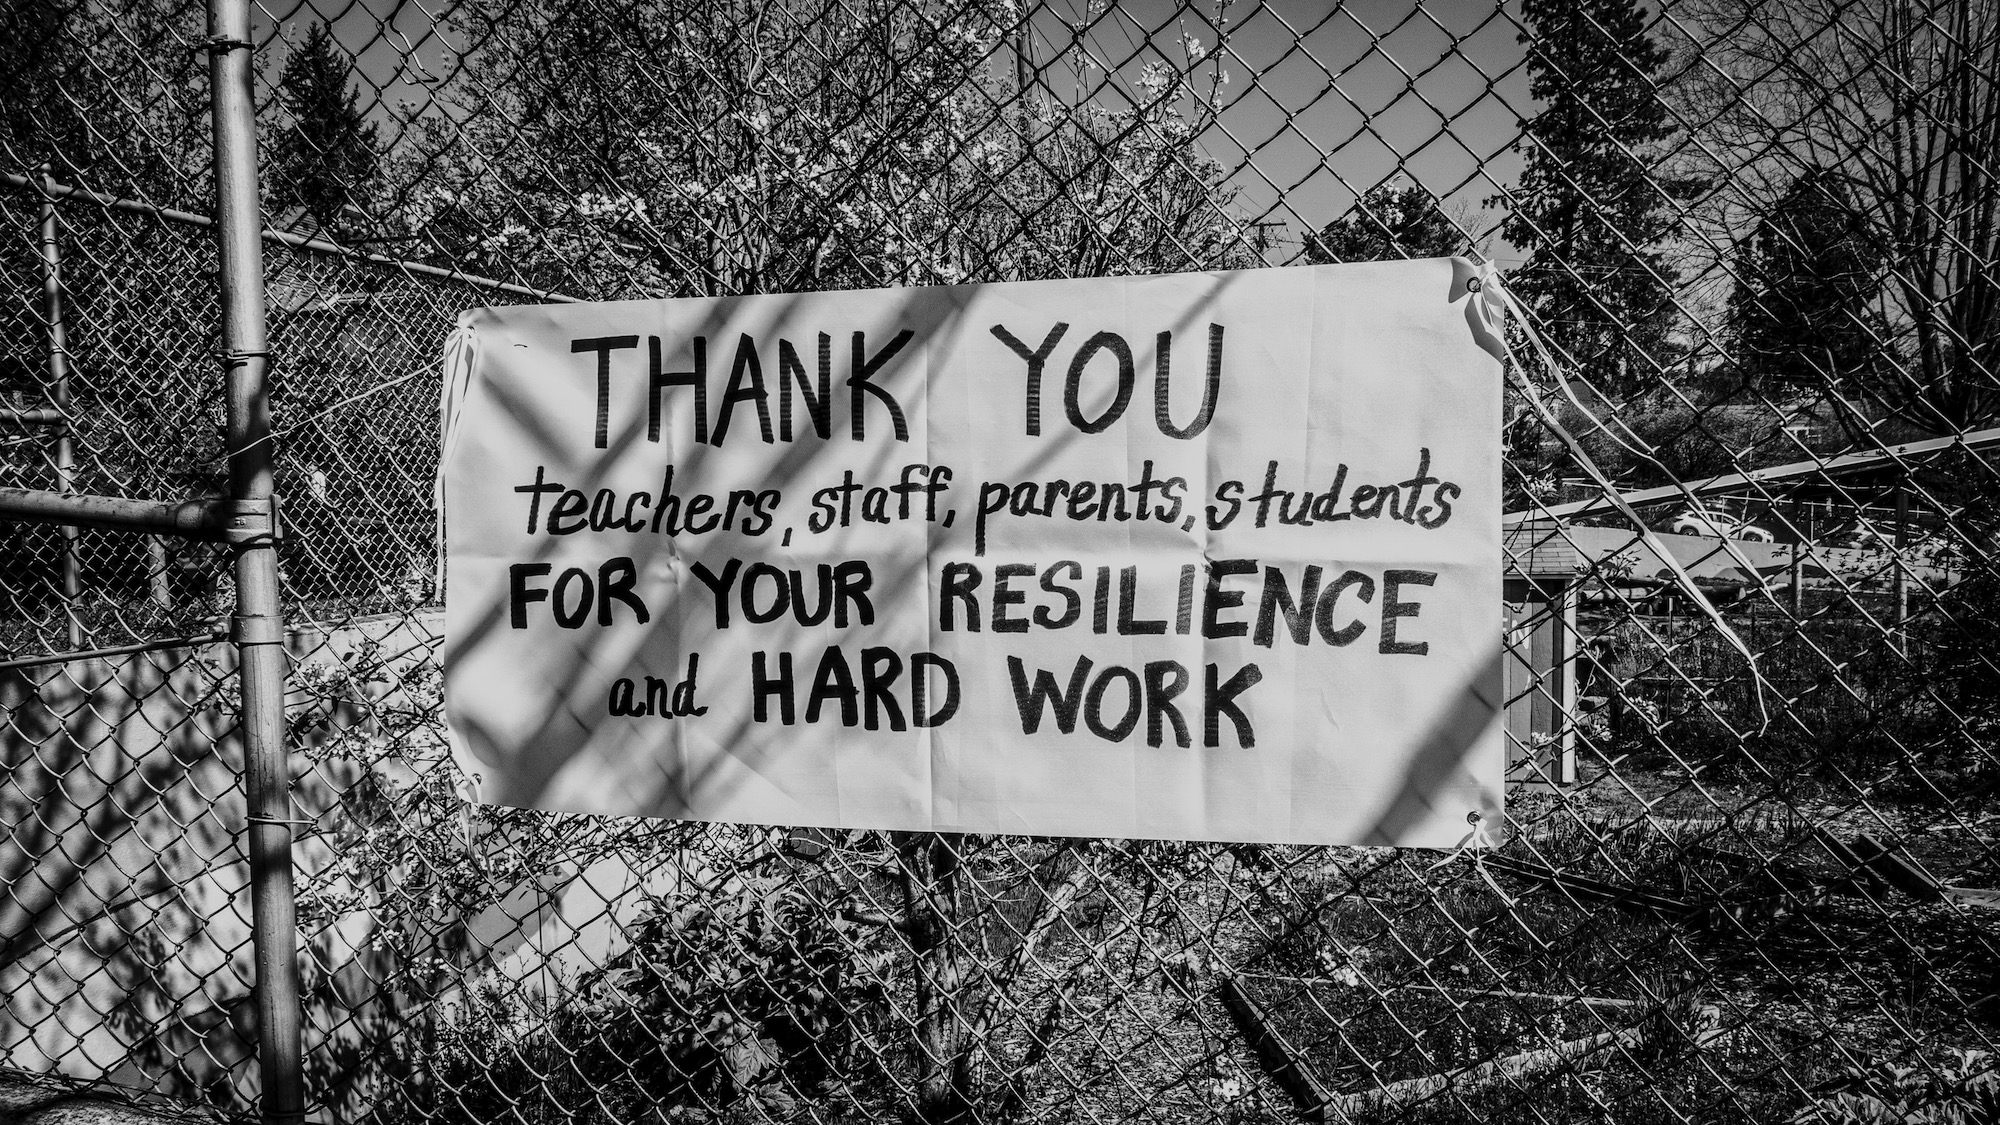 THANK YOU
teachers, staff, parents, students
FOR YOUR RESILIENCE
and HARD WORK